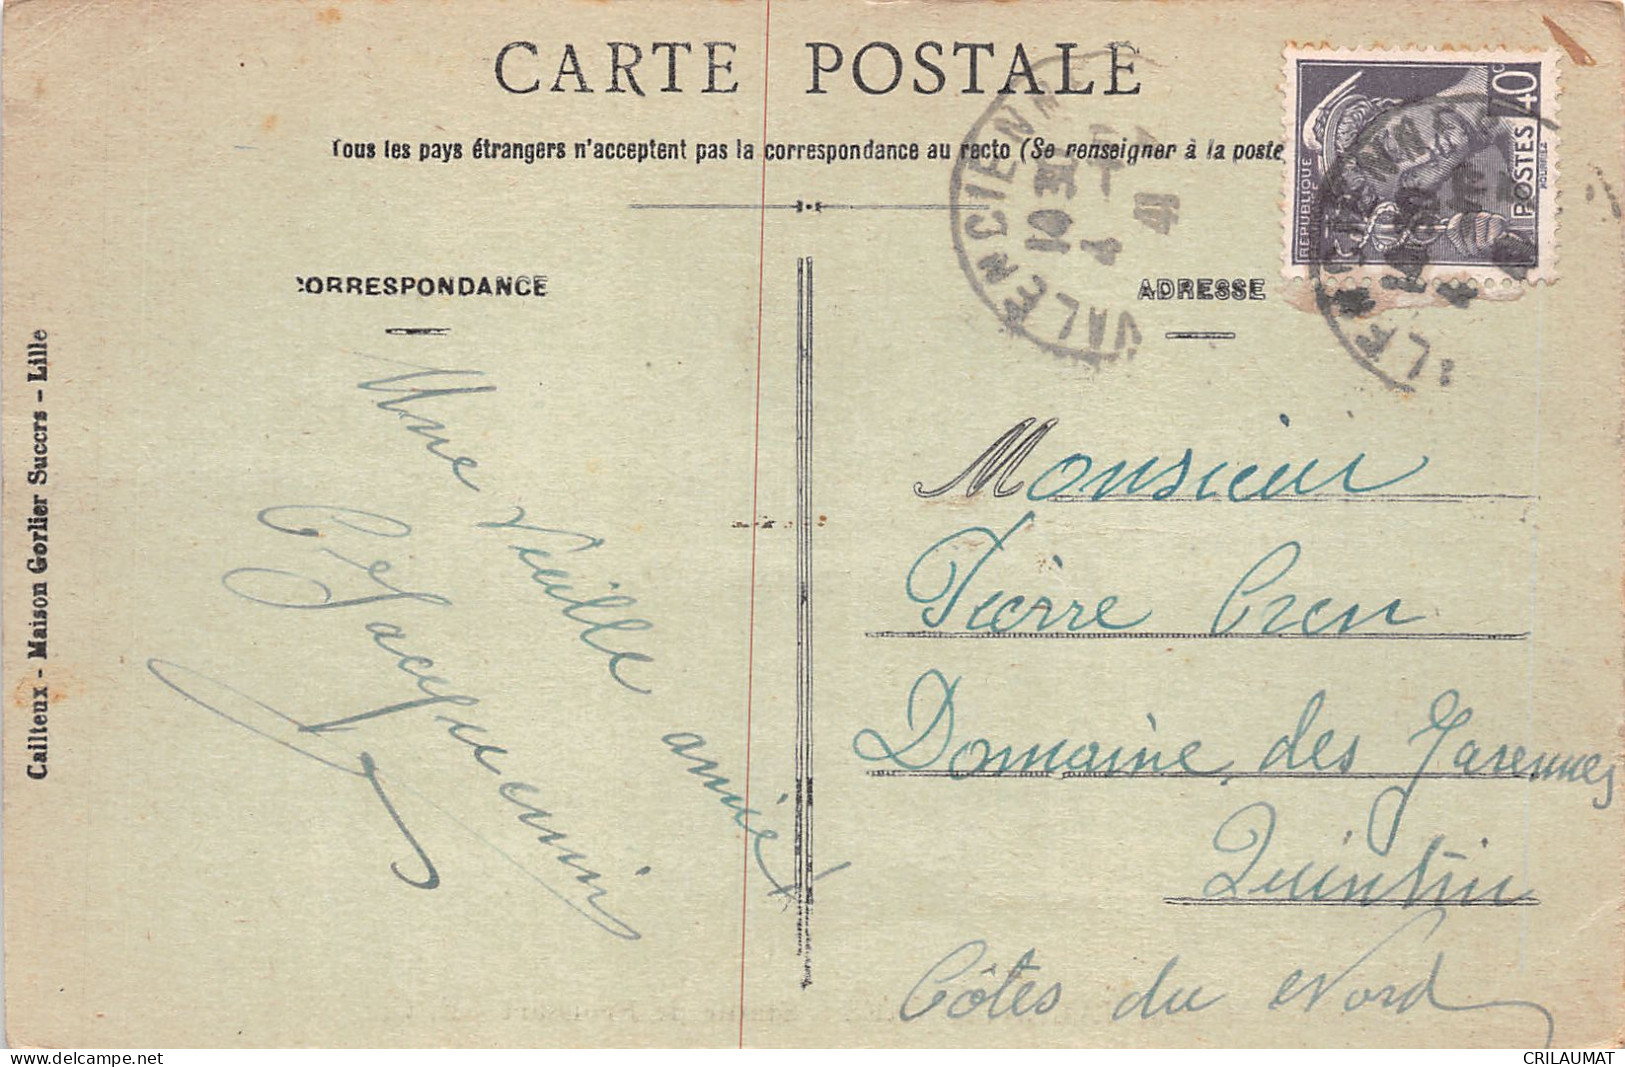 CARTE POSTALE
Tous les pays étrangers n'acceptent pas la correspondance au recto (Se renseigner à la poste
CORRESPONDANCE
ADRESSE
RÉPUBLIQUE
POSTES
40c
VALENCIENN
10 30
4
41
Cailteux - Maison Gorlier Succrs - Lille
Une Vieille amie
Jacquemin
Monsieur
Pierre Cren
Domaine des Garennes
Quintin
Côtes du Nord
CRILAUMAT